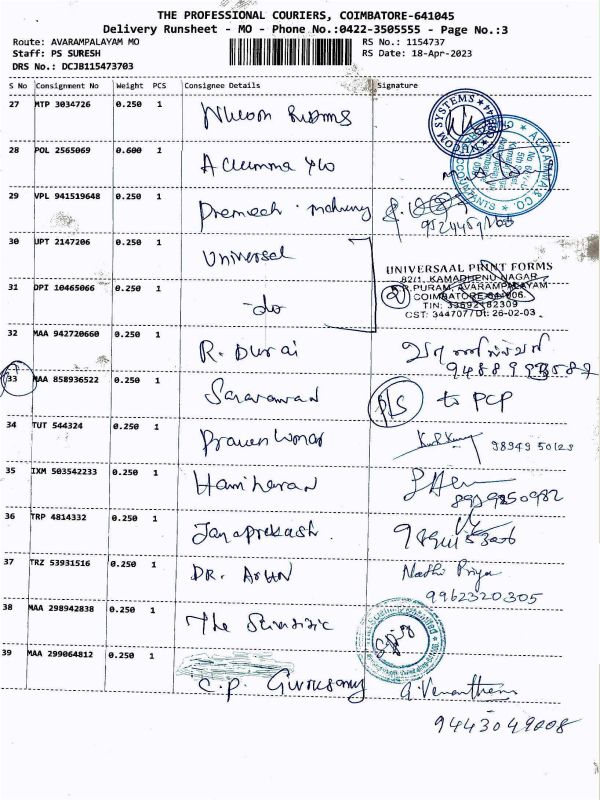 THE PROFESSIONAL COURIERS, COIMBATORE-641045
Delivery Runsheet - MO - Phone No.:0422-3505555 - Page No.:3
Route: AVARAMPALAYAM MO RS No.: 1154737
Staff: PS SURESH RS Date: 18-Apr-2023
DRS No.: DCJB115473703
S No Consignment No Weight PCS Consignee Details Signature
27 MTP 3034726 0.250 1
28 POL 2565069 0.600 1
29 VPL 941519648 0.250 1
30 UPT 2147206 0.250 1 Universal
UNIVERSAAL PRINT FORMS
82/1, KAMADHENU NAGAR
B.R.PURAM, AVARAMPALAYAM
COIMBATORE-641006.
TIN: 33692182309
CST: 344707/Dt: 26-02-03
31 DPI 10465066 0.250 1 -do
32 MAA 942720660 0.250 1 R. Durai
33 MAA 858936522 0.250 1 Saravanan P/S to PCP
34 TUT 544324 0.250 1 98949 50123
35 IXM 503542233 0.250 1 Hariharan
8939850982
36 TRP 4814332 0.250 1 Jayaprakash.
37 TRZ 53931516 0.250 1 DR. Arun Nathi Priya
9962320305
38 MAA 298942838 0.250 1 The
39 MAA 299064812 0.250 1 C.P. Gurusamy
9443049008